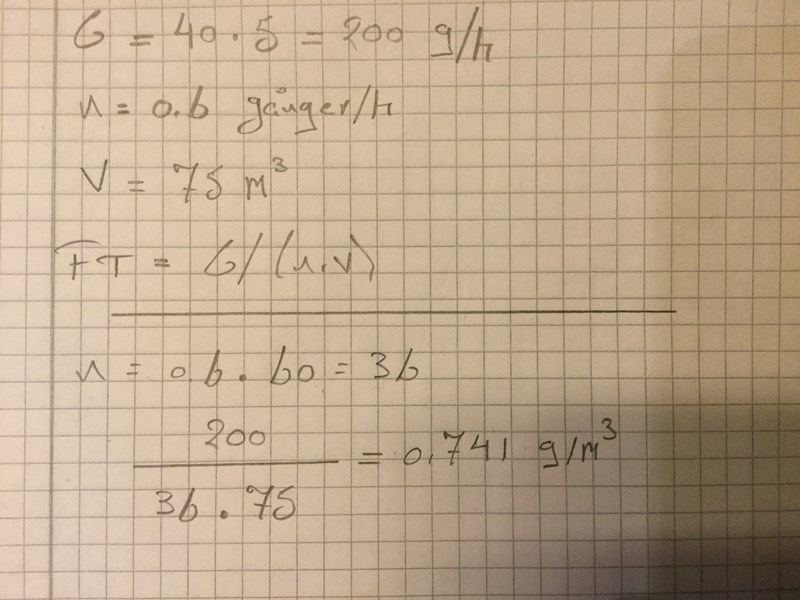 G = 40 · 5 = 200 g/h
n = 0.6 gånger/h
V = 75 m³
FT = G/(n.V)
n = 0.6 · 60 = 36
200
36 · 75
= 0.741 g/m³